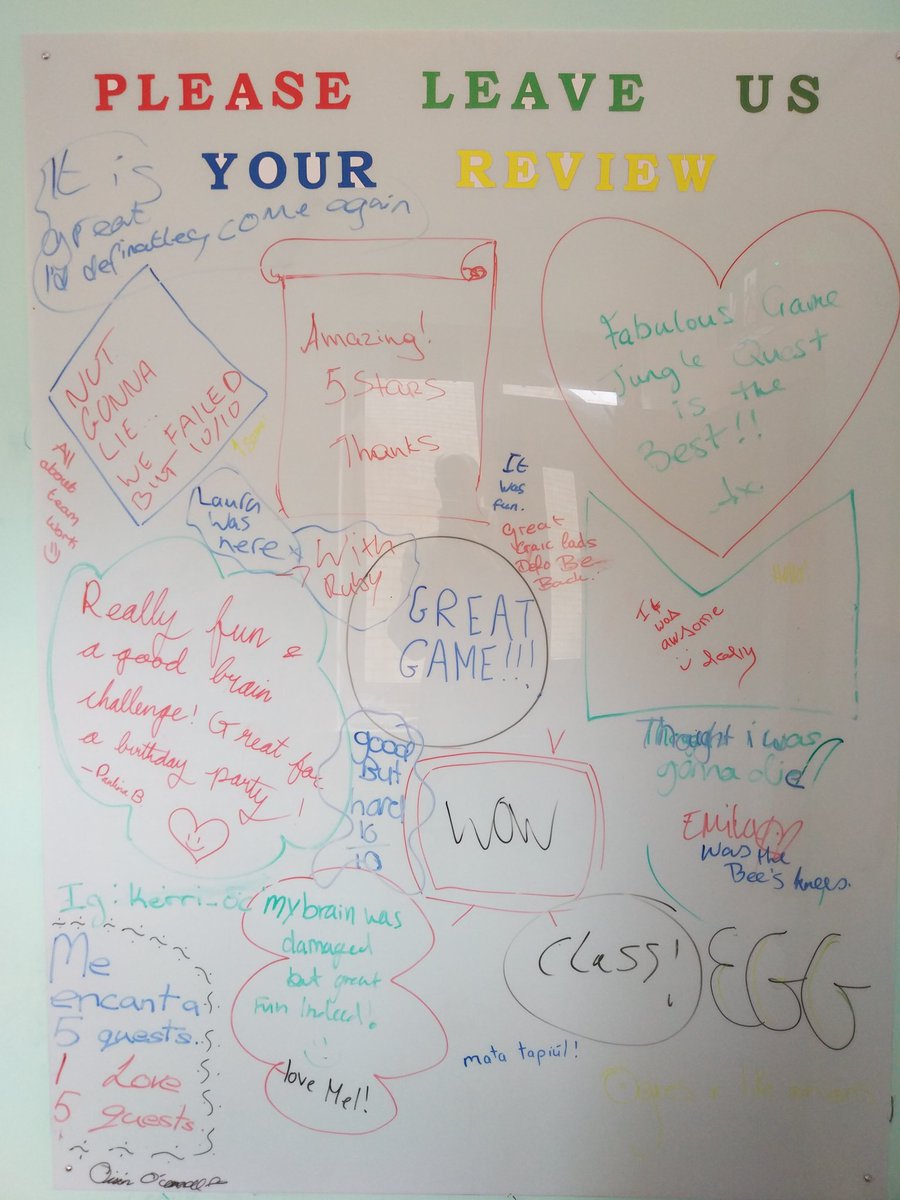 PLEASE LEAVE US
YOUR REVIEW
It is
great
I'd definatley come again
NOT
GONNA
LIE...
WE FAILED
BUT 10/10
All
about
team
work
Amazing!
5 Stars
Thanks
Fabulous Game
Jungle Quest
is the
Best!!
It
was
fun.
Great
craic lads
Defo Be
Back!
Laura
was
here
With
Ruby
GREAT
GAME!!!
It
was
awsome
Really fun &
a good brain
challenge! Great for
a birthday party!
-Paulina B
good
But
hard
10
10
WOW
Thought i was
gonna die
Emila
was the
Bee's knees.
Ig: kerri_
my brain was
damaged
but great
Fun Indeed!
love Mel!
Class!
EGG
Me
encanta
5 quests.
I Love
5 quests
mata tapiúl!